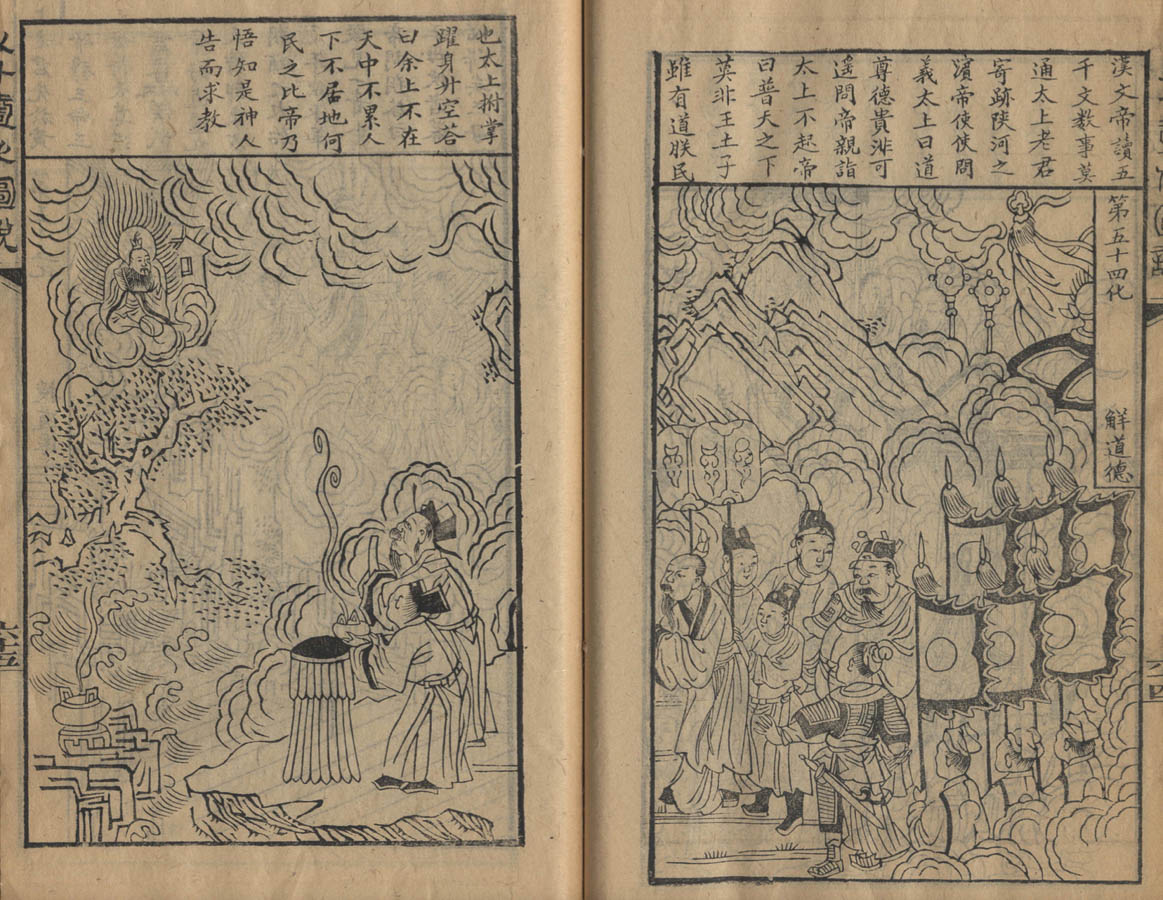 漢文帝讀五
千文数事莫
通太上老君
寄跡陕河之
濵帝使使問
義太上曰道
尊德貴非可
遥問帝親詣
太上不起帝
曰普天之下
莫非王土子
雖有道朕民
第五十四化
觧道德
也太上拊掌
躍身升空荅
曰余上不在
天中不累人
下不居地何
民之比帝乃
悟知是神人
告而求教
八十
化
圖說
六十五